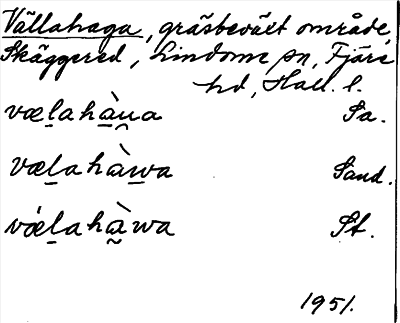 Vällahaga, gräsbeväxt område,
Skäggered, Lindome sn, Fjäre
hd, Hall. l.
væl̠ahà̠u̯a Sa.
væl̠ahàw̠a Sand.
vǿl̠ahà̰wa St.
1951.